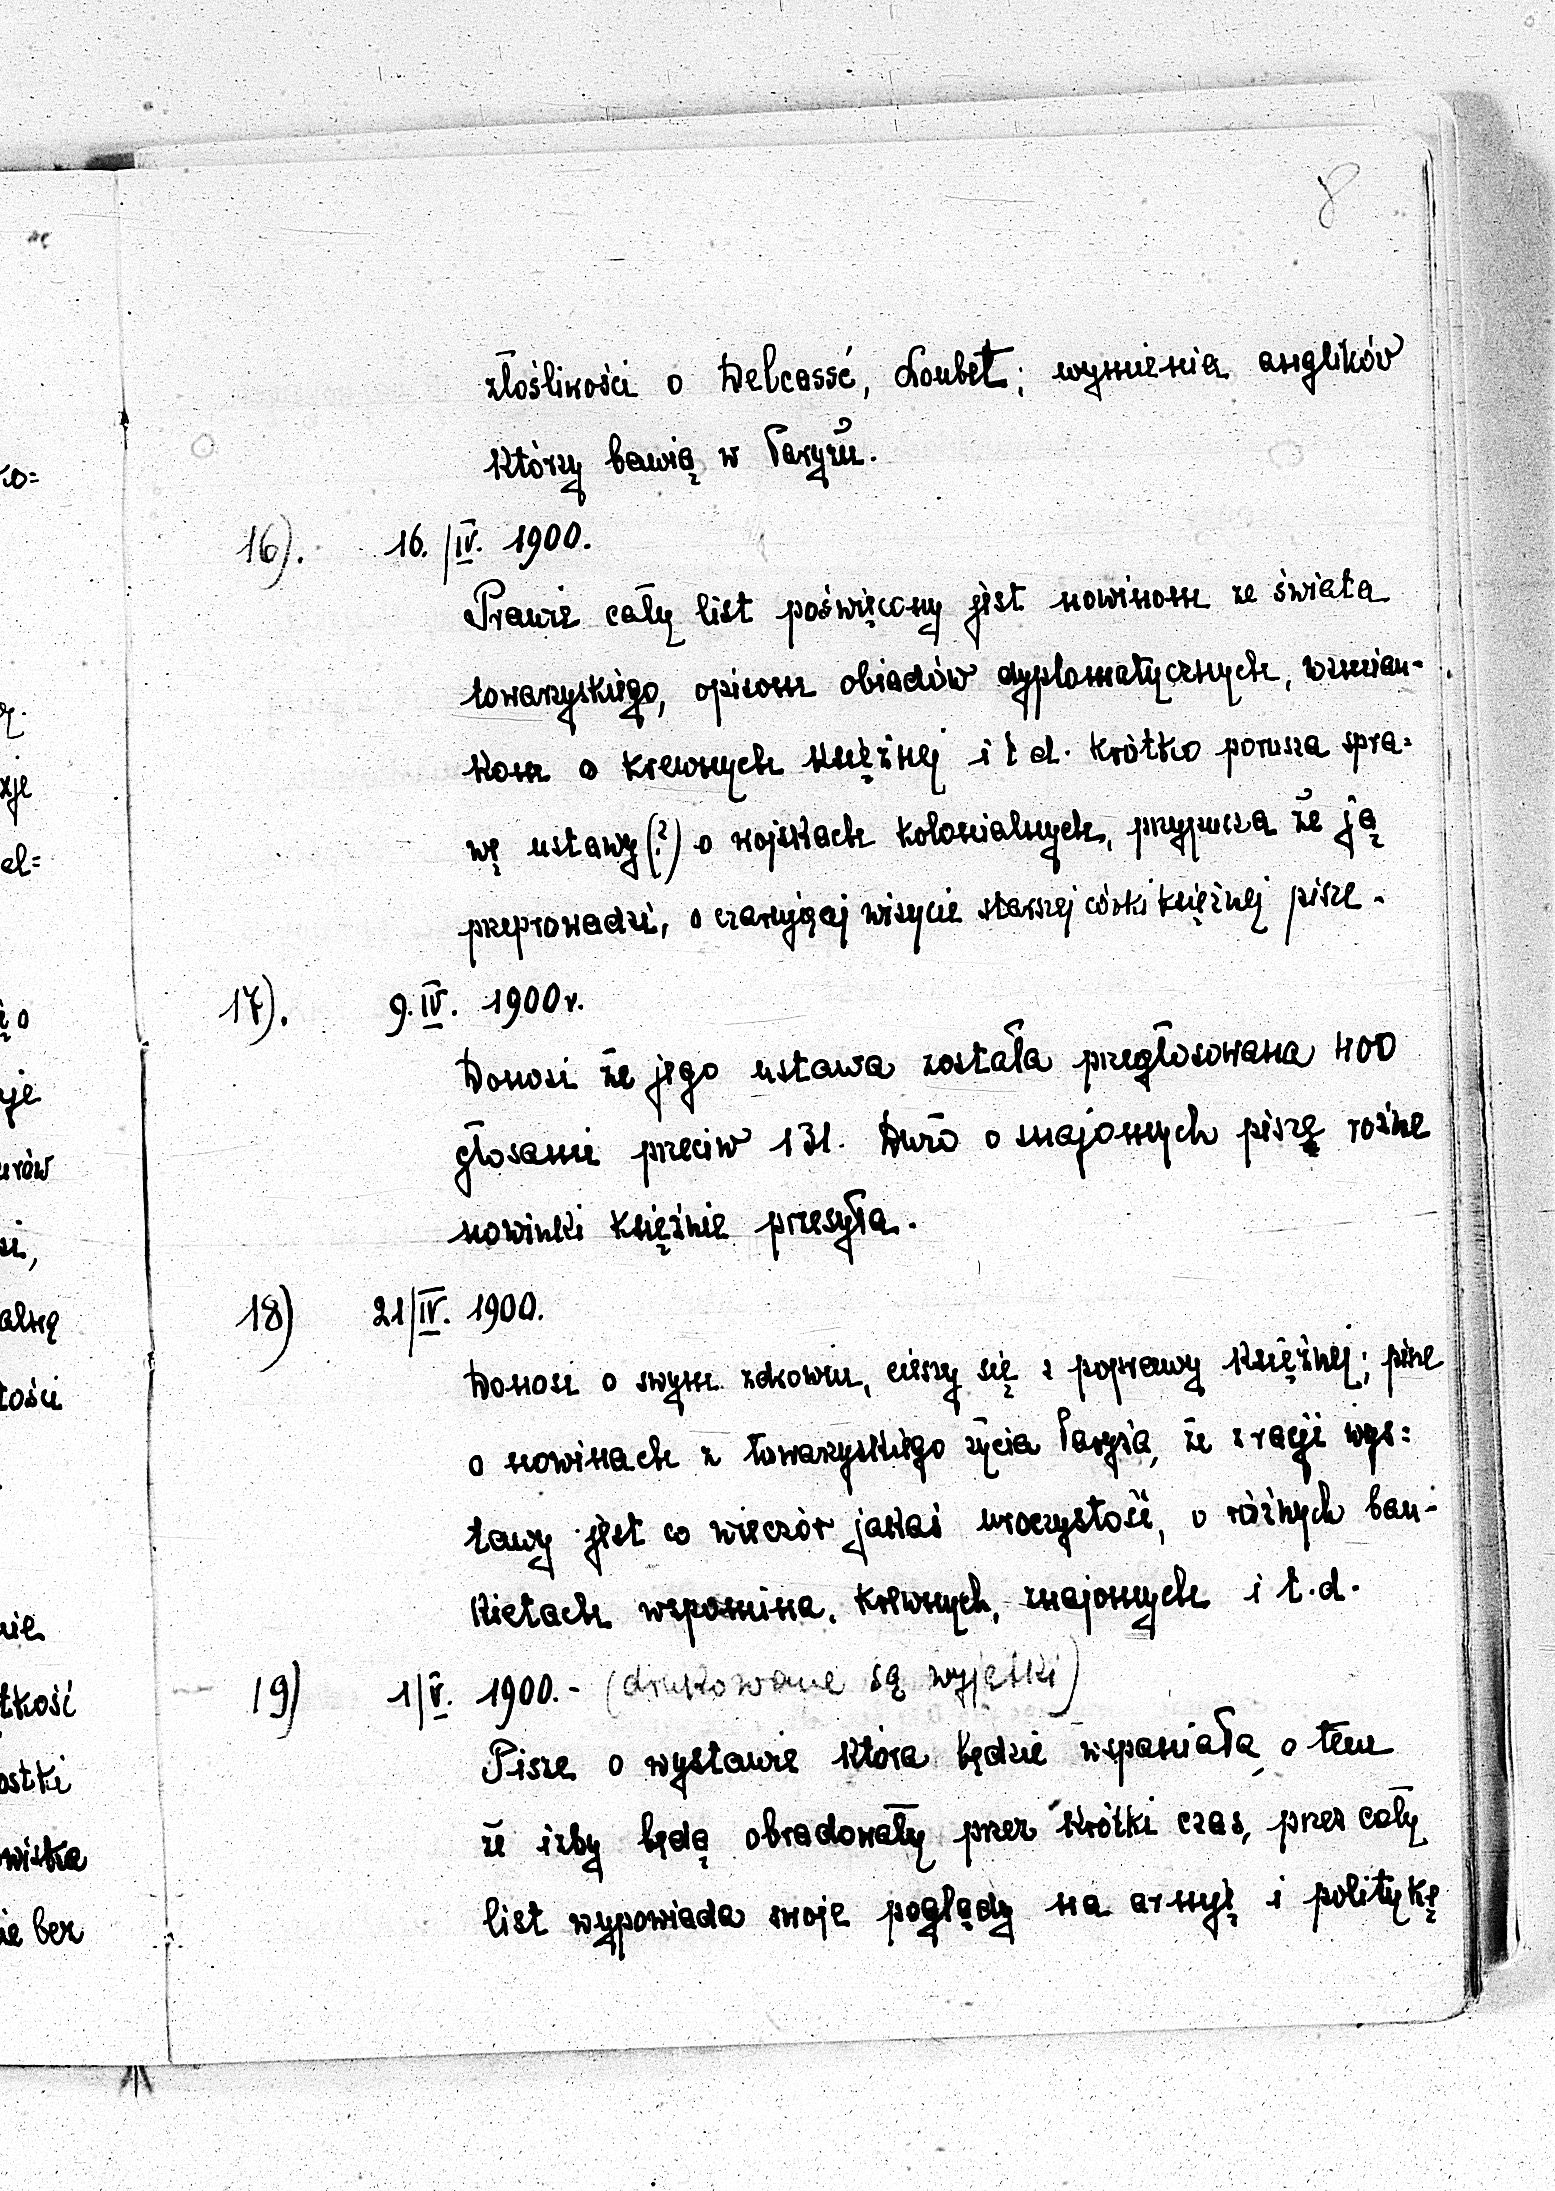 8
złośliwości o Delcassé, Loubet; wymienia anglików
którzy bawią w Paryżu.
16). 16./IV. 1900.
Prawie cały list poświęcony jest nowinom ze świata
towarzyskiego, opisom obiadów dyplomatycznych, wzmian-
kom o krewnych księżnej i t d. krótko porusza spra=
wę ustawy (?) o wojskach kolonialnych, przypuszcza że ją
przeprowadzi, o czarującej wizycie starszej córki księżnej pisze.
17). 9. IV. 1900 r.
Donosi że jego ustawa została przegłosowana 400
głosami przeciw 131. Dużo o znajomych piszę rożne
nowinki księżnie przesyła.
18) 21/IV. 1900.
Donosi o swym zdrowiu, cieszy się z poprawy księżnej; pisze
o nowinach z towarzyskiego życia Paryża, że z racji wys=
tawy jest co wieczór jakaś uroczystość, o różnych ban-
kietach wspomina, krewnych, znajomych i t.d.
19) 1/V. 1900.- (drukowane są wyjątki)
Pisze o wystawie która będzie wspaniała, o tem
że izby będą obradowały przez krótki czas, przez cały
list wypowiada swoje poglądy na armyę i politykę
ko=
el=
ło
uje
urów
alną
łości
nie
tkość
ostki
wiska
ie bez